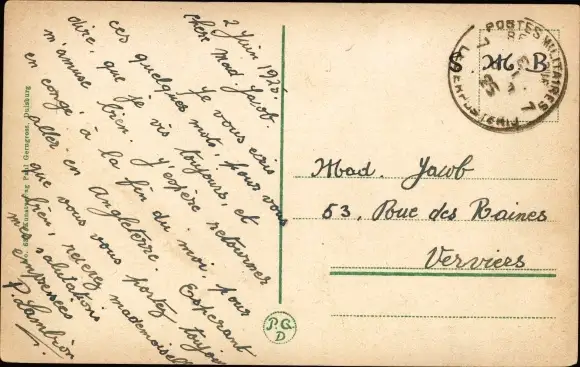 2 Juin 1925.
Chère Mad Jacob.
Je vous écris
ces quelques mots, pour vous
dire, que je vis toujours, et
m'amuse bien. J'espère retourner
en congé à la fin du moi, pour
aller en Angleterre. Esperant
que vous vous portez toujours
bien, recevez mademoiselle
mes salutations
empressées
P. Lambion
Kunstverlag Paul Gerngross, Duisburg
P.G.
D
POSTES MILITAIRES
7
7
S M B
Mad. Jacob
53, Rue des Raines
Verviers